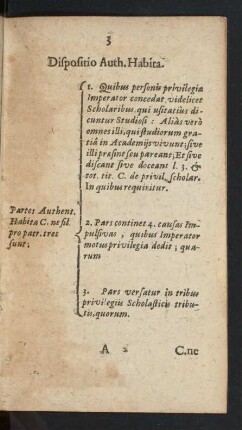 3
Dispositio Auth. Habita.
1. Quibus personis privilegia
Imperator concedat, videlicet
Scholaribus, qui usitatius di-
cuntur Studiosi: Aliàs verò
omnes illi, qui studiorum gra-
tiâ in Academijs vivunt; sive
illi præsint seu pareant; Et sive
discant sive doceant l. 3. &
tot. tit. C. de privil. scholar.
In quibus requiritur.
Partes Authent.
Habita C. ne fil.
pro patr. tres
sunt:
2. Pars continet 4. causas Im-
pulsivas, quibus Imperator
motus privilegia dedit; qua-
rum
3. Pars versatur in tribus
privilegiis Scholasticis tribu-
tis, quorum.
A 2 C.ne